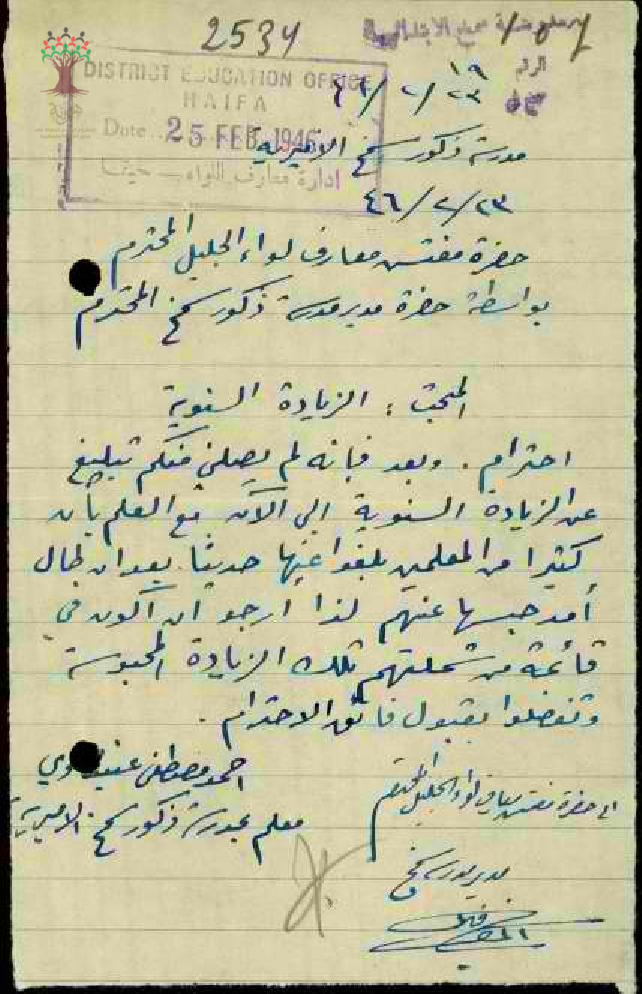 2534
DISTRICT EDUCATION OFFICE
HAIFA
Date 25 FEB 1946
ادارة معارف اللواء – حيفا
الرقم ١٩
٤٦/٢/٢٣
مدرسة ذكور سمخ الاميرية
٤٦/٢/٢٣
حضرة مفتش معارف لواء الجليل المحترم
بواسطة حضرة مدير مدرسة ذكور سمخ المحترم
المبحث : الزيادة السنوية
احترام . وبعد فإنه لم يصلني منكم تبليغ
عن الزيادة السنوية الى الآن مع العلم بأن
كثيرا من المعلمين بلغوا عنها حديثا بعد ان طال
أمد حبسها عنهم لذا ارجو ان أكون في
قائمة من شملتهم تلك الزيادة المحبوسة
وتفضلوا بقبول فائق الاحترام .
احمد مصطفى
معلم بمدرسة ذكور سمخ الاميرية
الى حضرة مفتش معارف لواء الجليل المحترم
مدير مدرسة سمخ